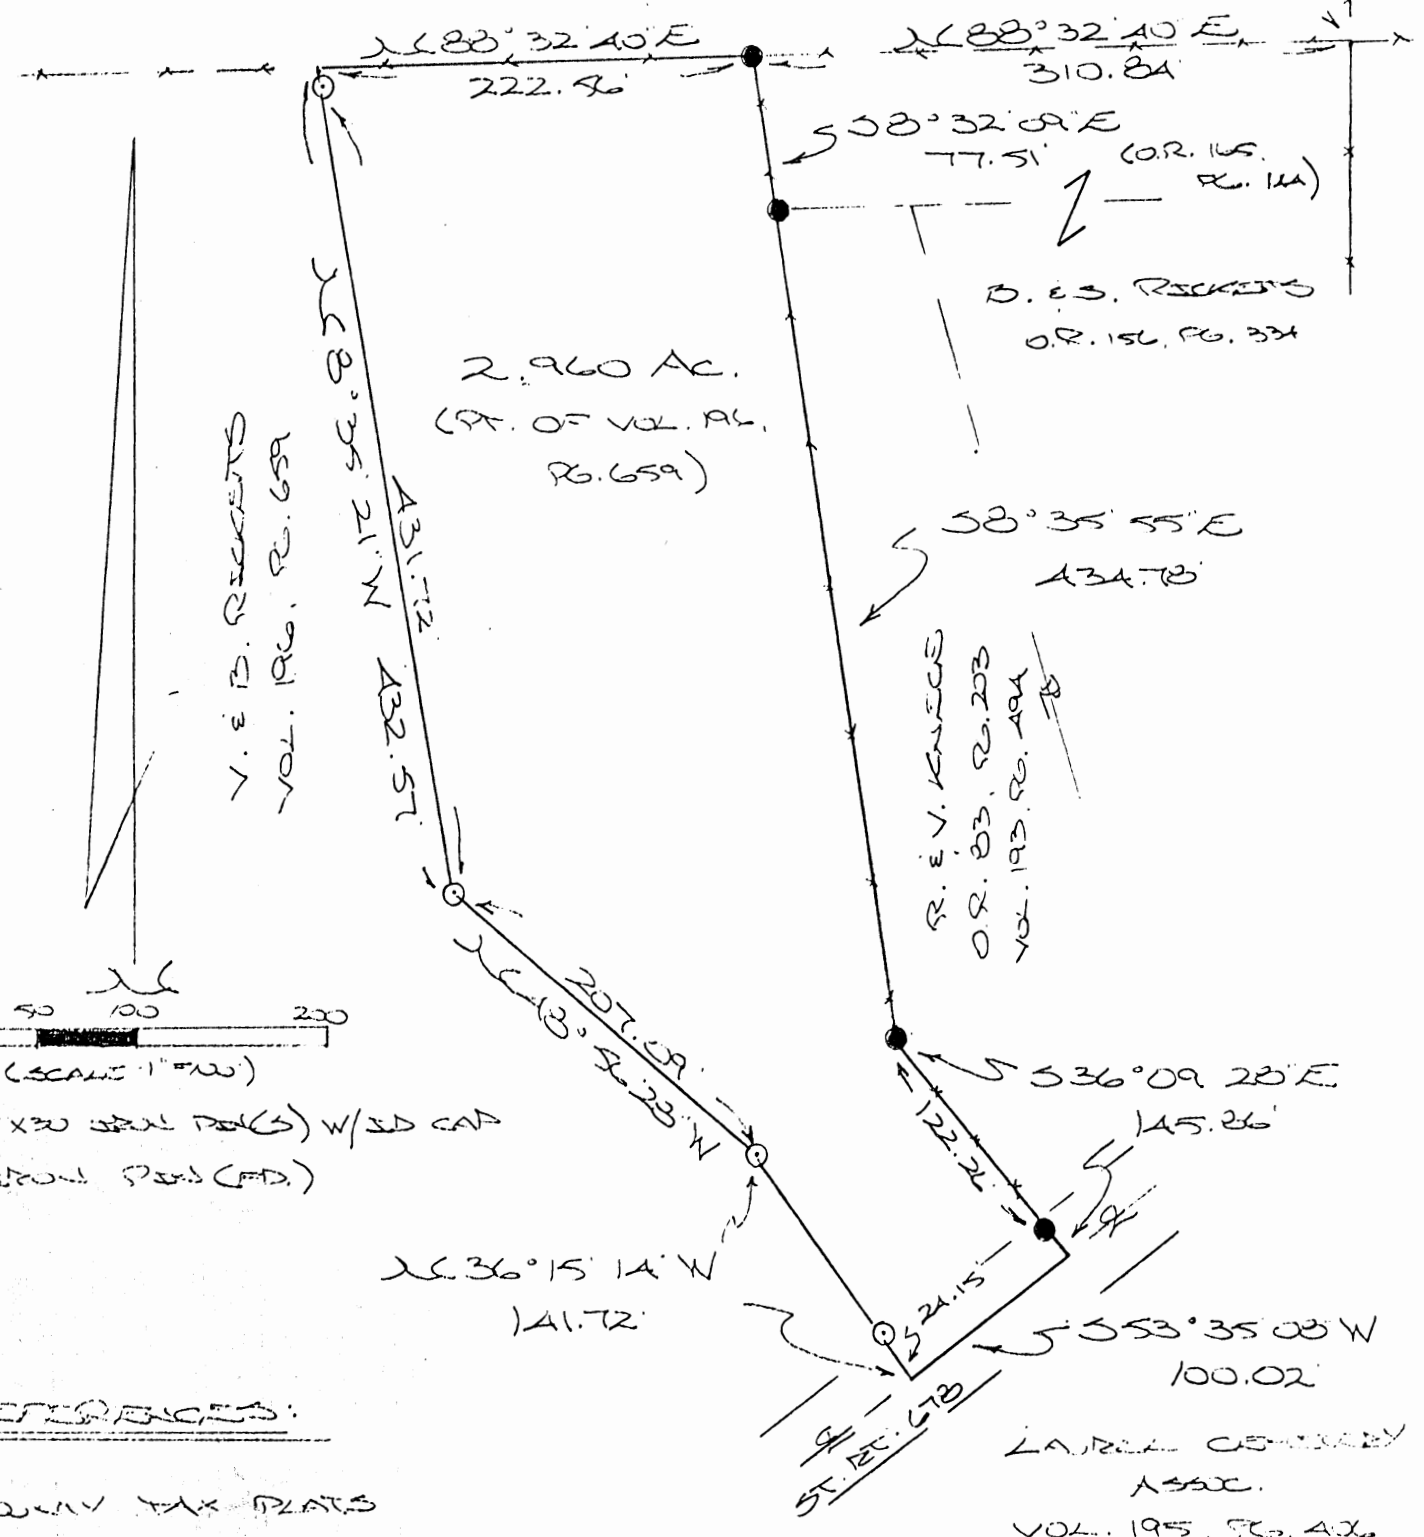 N88°32'40"E
222.56'
N88°32'40"E
310.84'
S8°32'09"E
77.51'
(O.R. 165,
PG. 144)
B. & S. RICKETTS
O.R. 156, PG. 334
2.960 AC.
(PT. OF VOL. 196,
PG. 659)
N8°35'21"W 432.57'
431.72'
V. & B. RICKETTS
VOL. 196, PG. 659
S8°35'55"E
434.78'
R. & V. KNEECE
O.R. 83, PG. 203
VOL. 193, PG. 494
N
50 100 200
(SCALE 1"=100')
X30 IRON PIN(S) W/ID CAP
IRON PIN (FD.)
207.09'
N48°56'23"W
S36°09'28"E
145.86'
122.26'
N36°15'14"W
141.72'
24.15'
S53°35'03"W
100.02'
ST. RT. 678
LAUREL CEMETERY
ASSOC.
VOL. 195, PG. 406
REFERENCES:
TAX PLATS